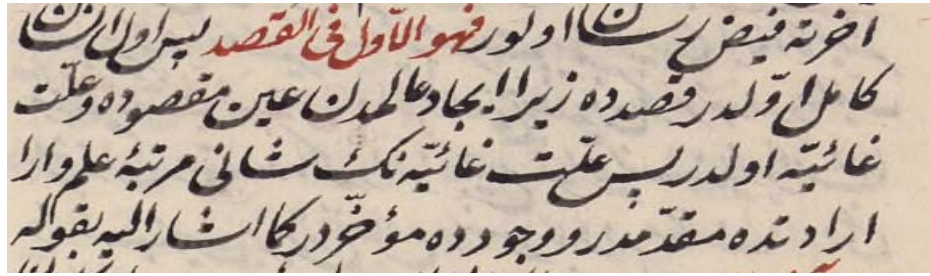 اخرته فيض رسان اولور فهو الاوّل فى القصد پس اول انسان
كامل اوّلدر قصدده زيرا ايجاد عالمدن عين مقصوده و علّت
غائيّه اولدر پس علّت غائيّه نك شانى مرتبۀ علم و ارا
ارادتده مقدّمدر و وجودده مؤخّردر كما اشار اليه بقوله